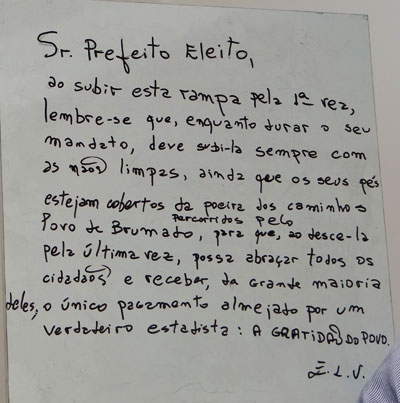 Sr. Prefeito Eleito,
ao subir esta rampa pela 1ª vez,
lembre-se que, enquanto durar o seu
mandato, deve subi-la sempre com
as mãos limpas, ainda que os seus pés
estejam cobertos da poeira dos caminhos
percorridos pelo
Povo de Brumado, para que, ao desce-la
pela última vez, possa abraçar todos os
cidadãos e receber, da grande maioria
deles, o único pagamento almejado por um
verdadeiro estadista: A GRATIDÃO DO POVO.
E.L.V.